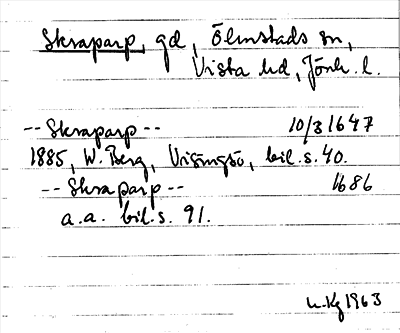 Skraparp, gd, Ölmstads sn,
Vista hd, Jönk. l.
-- Skraparp -- 10/3 1647
1885, W. Berg, Visingsö, bil. s. 40.
-- Skraparp -- 1686
a.a. bil. s. 91.
1963